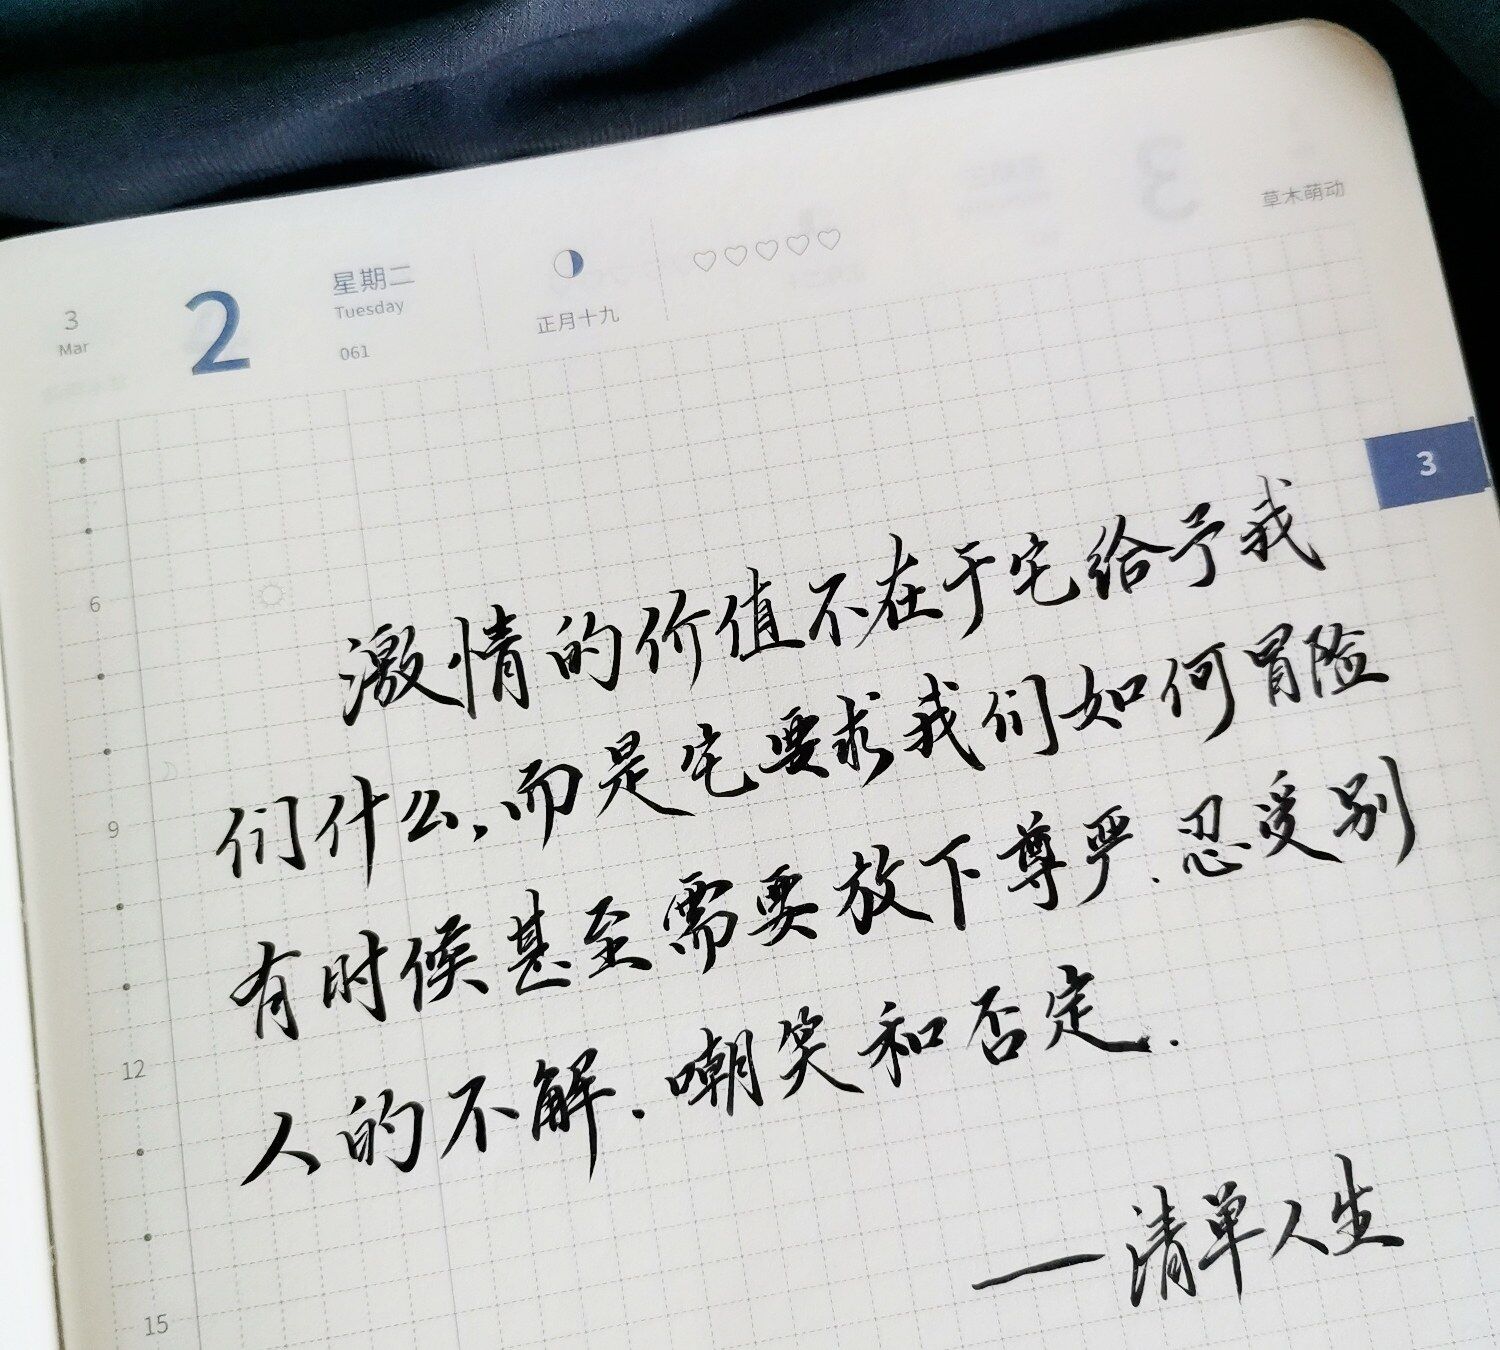 3
Mar
2
星期二
Tuesday
061
正月十九
草木萌动
3
激情的价值不在于它给予我
们什么,而是它要求我们如何冒险
有时候甚至需要放下尊严.忍受别
人的不解.嘲笑和否定.
—清单人生
6
9
12
15